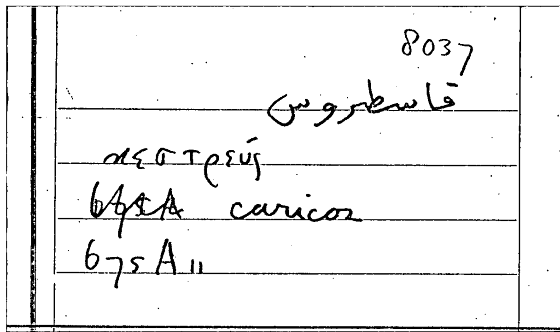 8037
قاسطروس
κεστρεύς
caricoz
675A 11